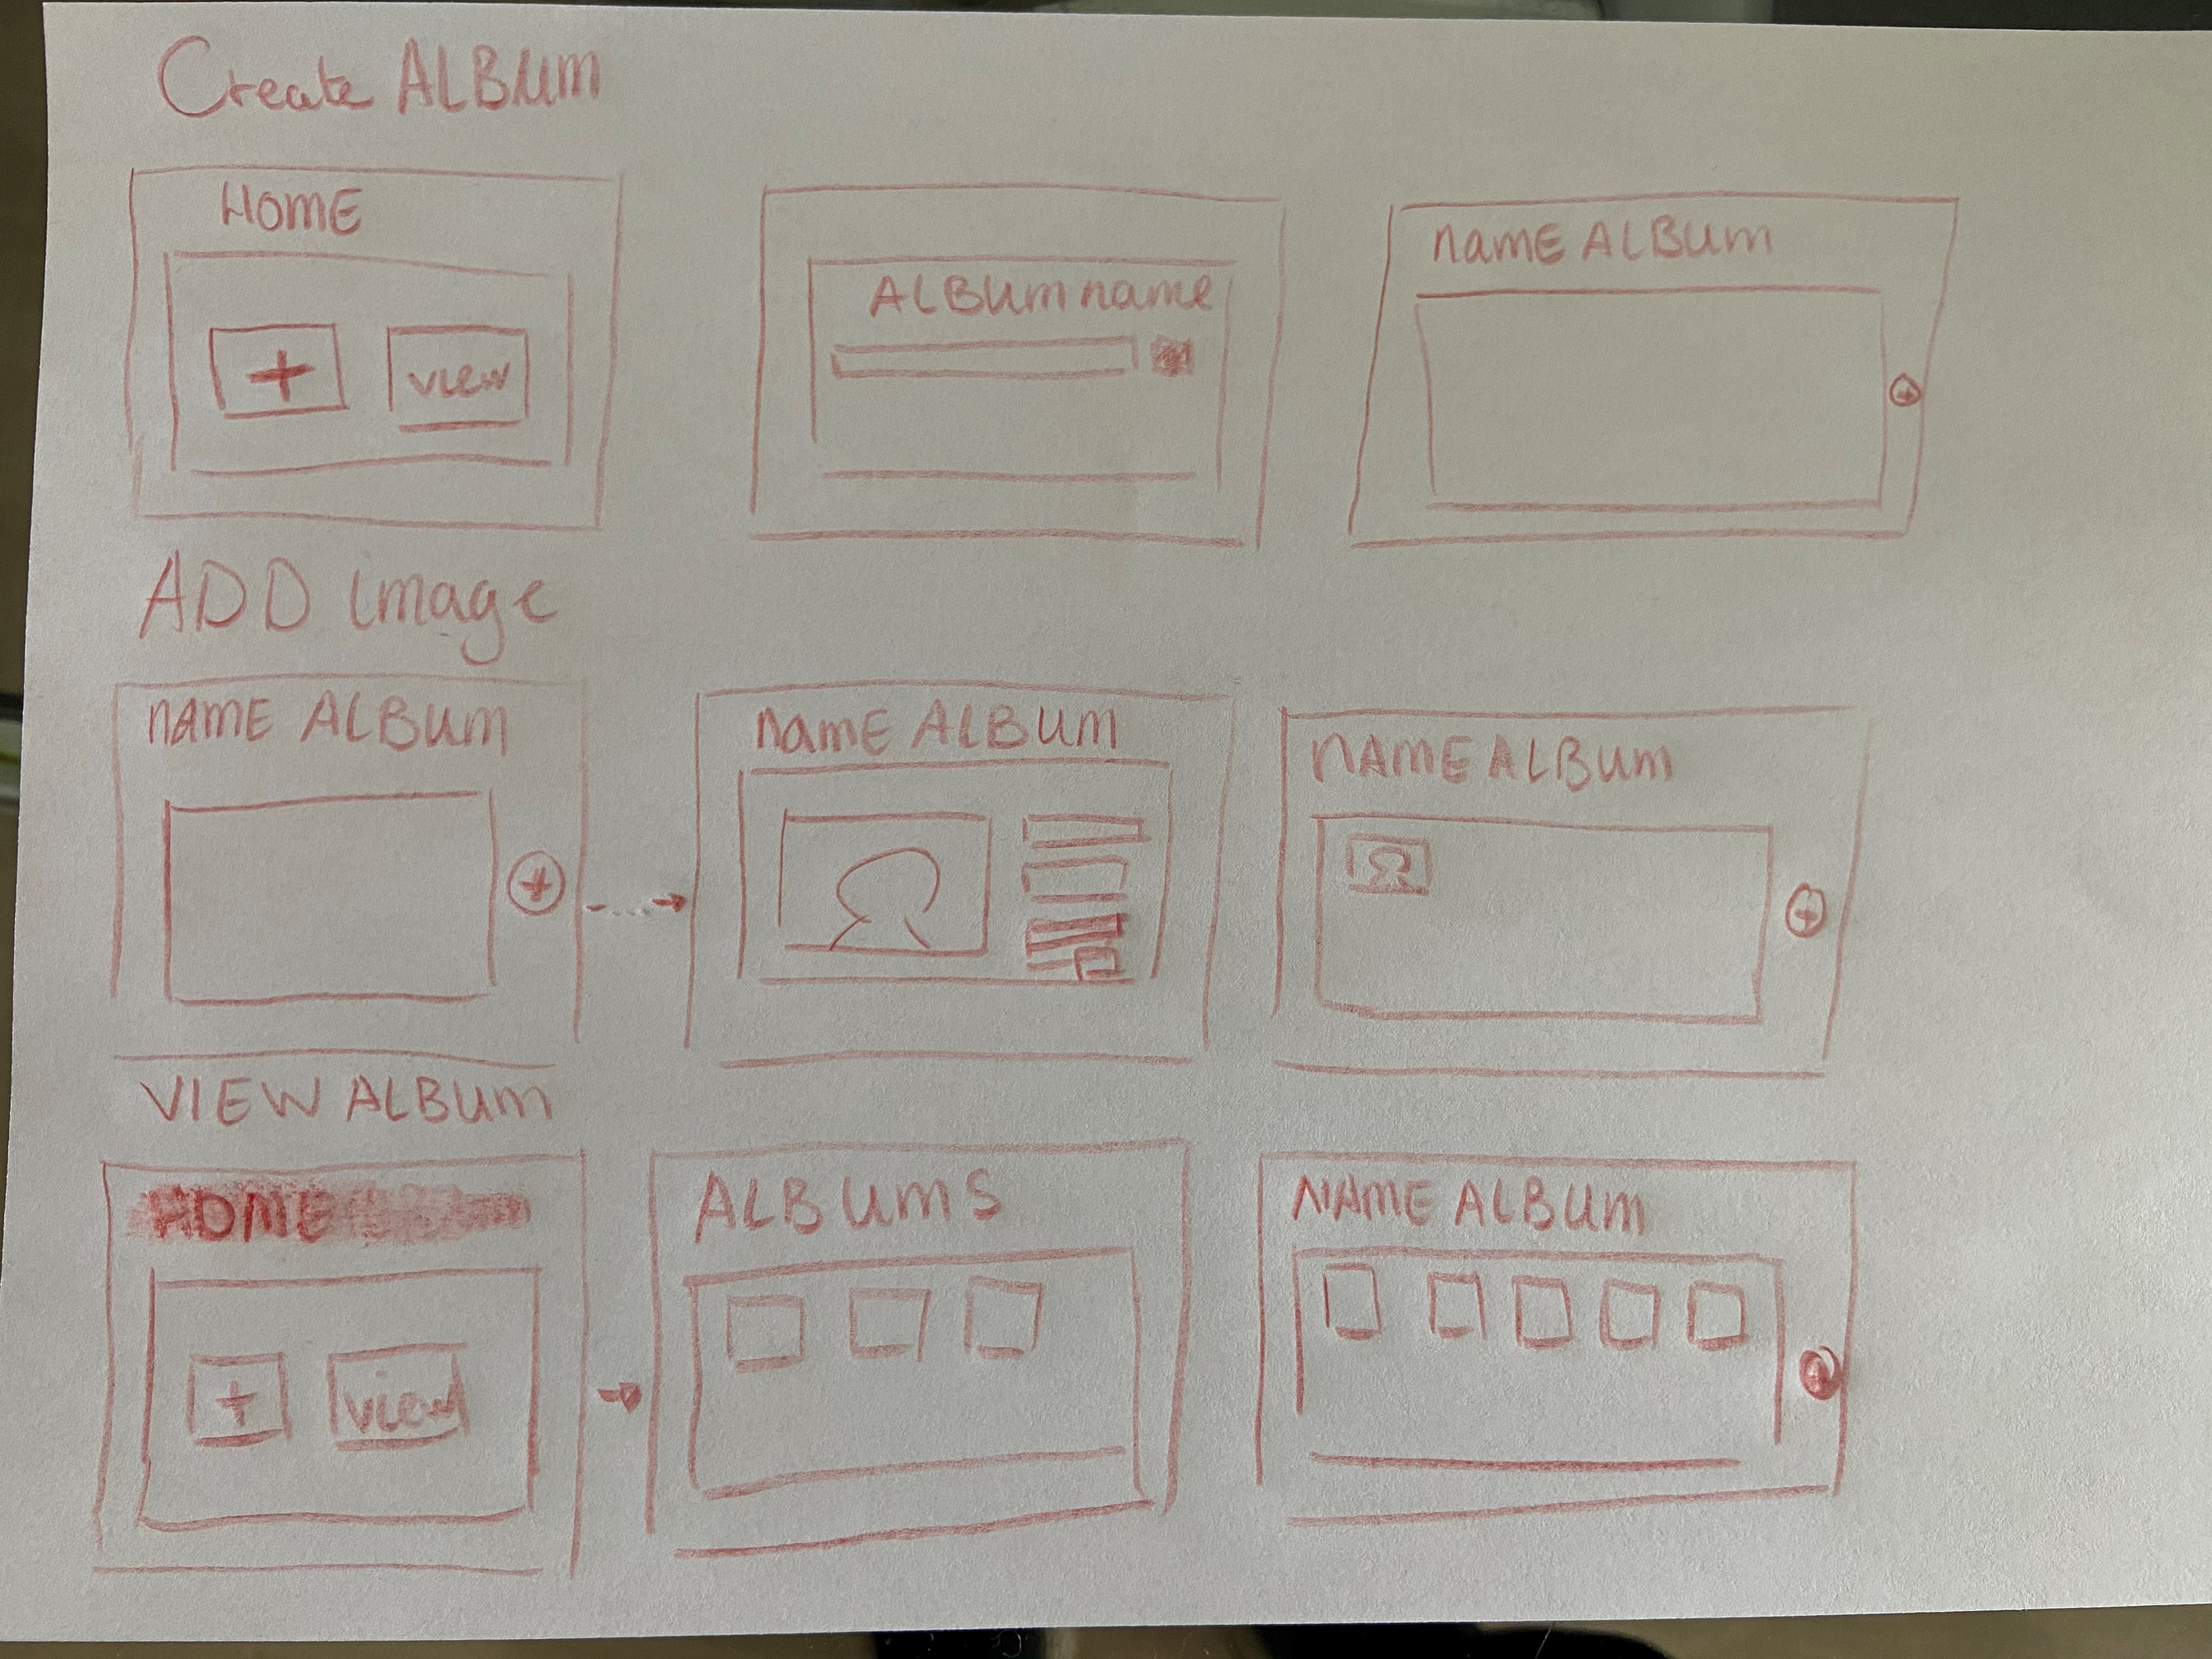 Create ALBUM
HOME
+ view
ALBUM name
name ALBUM
+
ADD image
NAME ALBUM
+
name ALBUM
NAME ALBUM
+
VIEW ALBUM
HOME
+ view
ALBUMS
NAME ALBUM